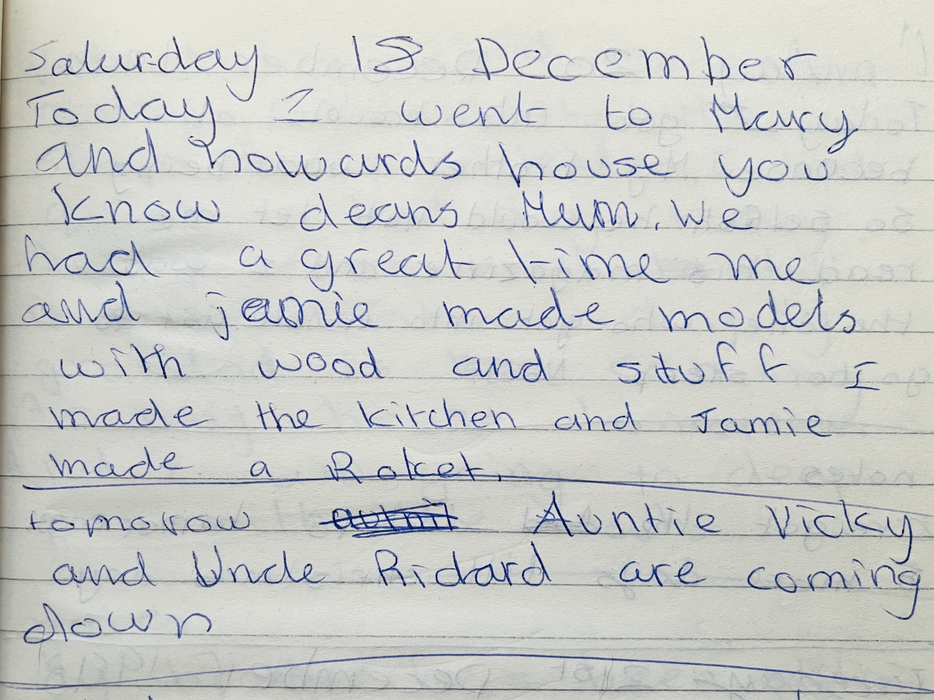 Saturday 18 December
Today I went to Mary
and howards house you
know deans Mum. We
had a great time me
and jamie made models
with wood and stuff I
made the kitchen and Jamie
made a Roket.
tomorow Auntie Vicky
and Uncle Ridard are coming
down